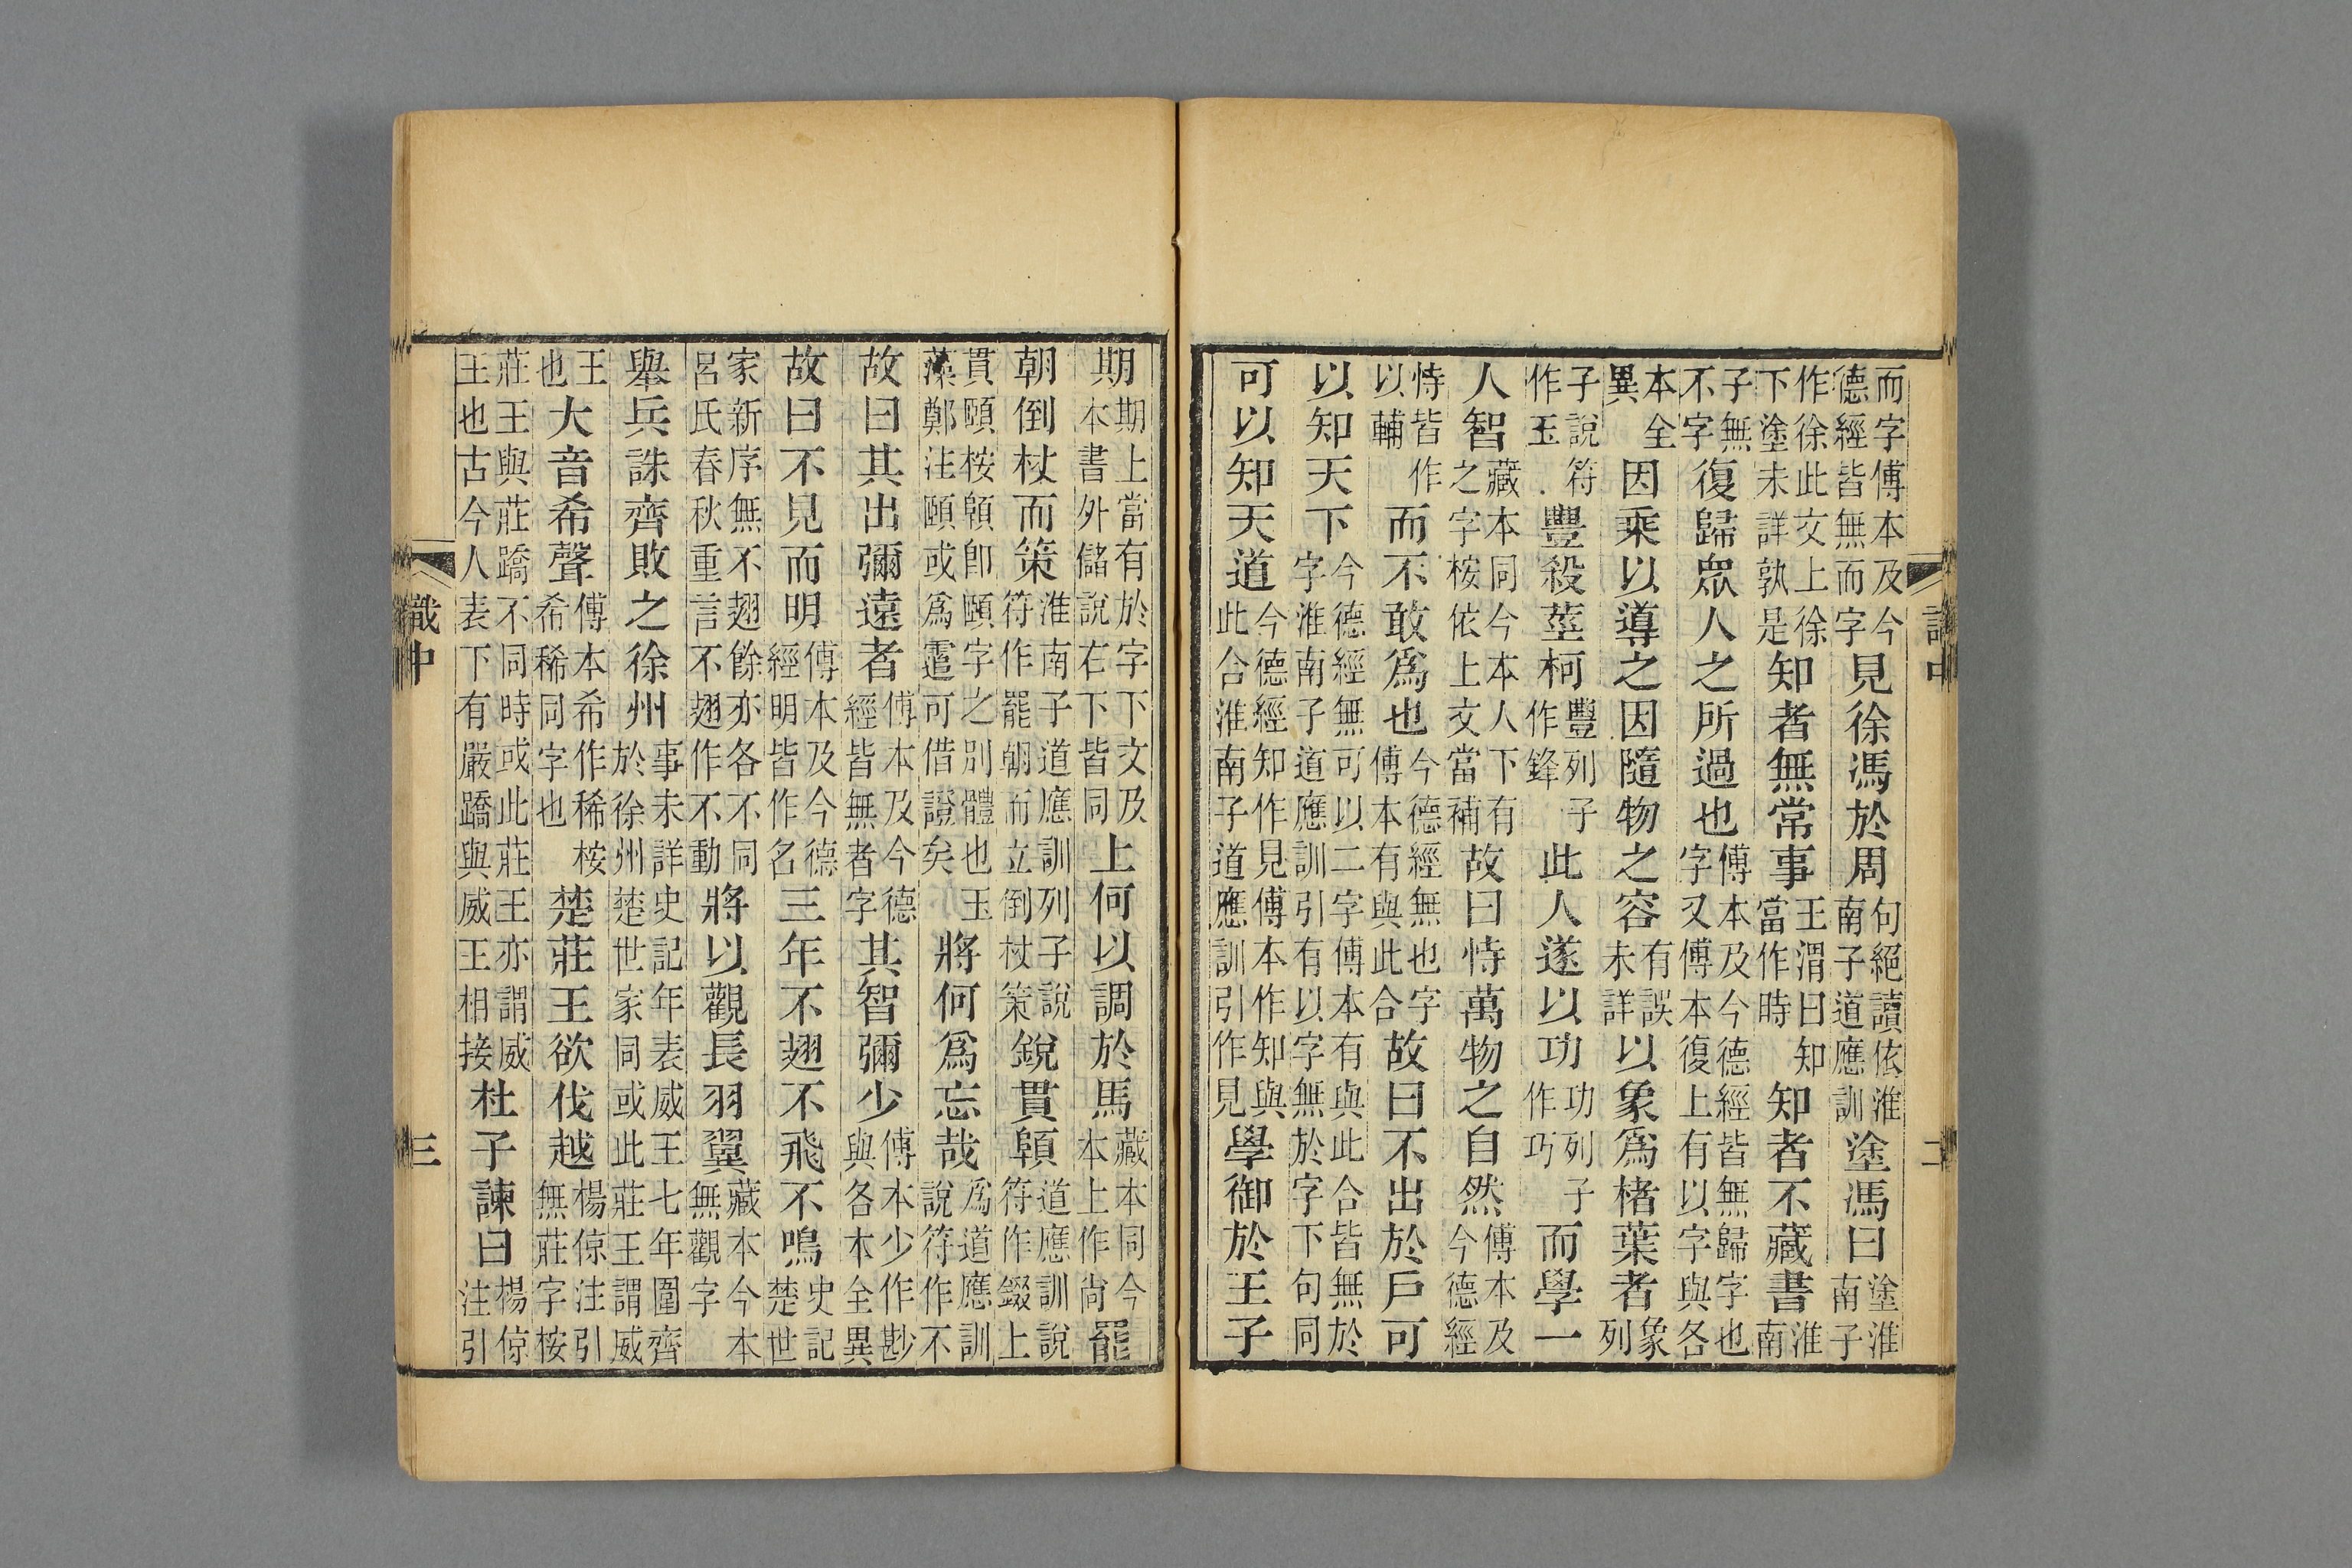 而字傅本及今德經皆無而字見徐馮於周句絕讀依淮南子道應訓塗馮曰塗淮南子
作徐此文上徐下塗未詳孰是知者無常事王渭曰知當作時知者不藏書淮南
子無不字復歸眾人之所過也傅本及今德經皆無歸字也字又傅本復上有以字與各
本全異因乘以導之因隨物之容有誤未詳以象爲楮葉者象列
子說符作玉豐殺莖柯豐列子作鋒此人遂以功功列子作巧而學一
人智藏本同今本人下有之字桉依上文當補故曰恃萬物之自然傅本及今德經
恃皆作以輔而不敢爲也今德經無也字傅本有與此合故曰不出於戶可
以知天下今德經無可以二字傅本有與此合皆無於字淮南子道應訓引有以字無於字下句同
可以知天道今德經知作見傅本作知與此合淮南子道應訓引作見學御於王子
二
期期上當有於字下文及本書外儲說右下皆同上何以調於馬藏本同今本上作尚罷
朝倒杖而策淮南子道應訓列子說符作罷朝而立倒杖策銳貫顊道應訓說符作錣上
貫頤桉顊卽頤字之別體也玉藻鄭注頤或爲霆可借證矣將何爲忘哉爲道應訓說符作不
故曰其出彌遠者傅本及今德經皆無者字其智彌少傅本少作尟與各本全異
故曰不見而明傅本及今德經明皆作名三年不翅不飛不鳴史記楚世
家新序無不翅餘亦各不同呂氏春秋重言不翅作不動將以觀長羽翼藏本今本無觀字
舉兵誅齊敗之徐州事未詳史記年表威王七年圍齊於徐州楚世家同或此莊王謂威
王也大音希聲傅本希作稀桉希稀同字也楚莊王欲伐越楊倞注引無莊字桉
莊王與莊蹻不同時或此莊王亦謂威王也古今人表下有嚴蹻與威王相接杜子諫曰楊倞注引
識中 三